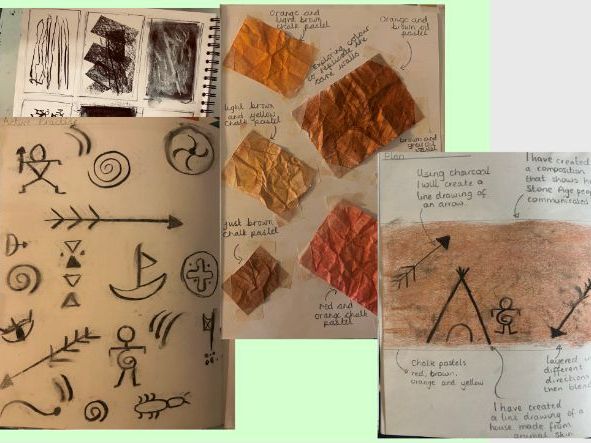 Orange and
light brown
chalk pastel
Orange and
brown oil
pastel
Exploring colour
to replicate the
cave walls
light brown
and yellow
chalk pastel
brown and
just brown
chalk pastel
red and
orange chalk
pastel
Plan
Using charcoal
I will create a
line drawing of
an arrow.
I have created
a composition
that shows h
Stone Age peop
communicated
Chalk pastels
red, brown,
orange and yellow
layered
different
directions
then blen
I have created
a line drawing of a
house made from
animal skin